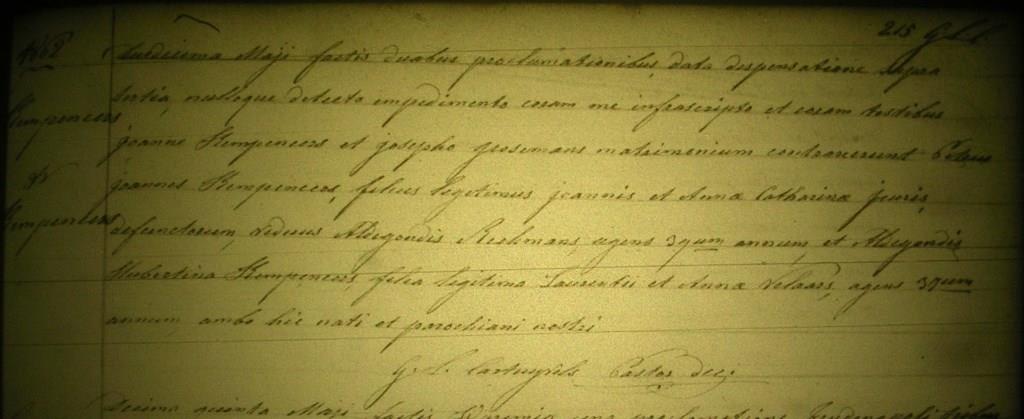 215
1862
duodecima Maji factis duabus proclamationibus, data dispensatione supra
Kempeneers
tertia, nulloque detecto impedimento coram me infrascripto et coram testibus
joanne Kempeneers et josepho Grosemans matrimonium contraxerunt Petrus
&
joannes Kempeneers, filius legitimus joannis et Anna Catharina
Kempeneers
defunctorum, viduus Aldegondis agens 39um annum, et Aldegondis
Hubertina Kempeneers, filia legitima Laurentii et Anna agens 37um
annum ambo hic nati et parochiani nostri
G. L. Cartuyvels Pastor
Decima quinta Maji factis una proclamatione